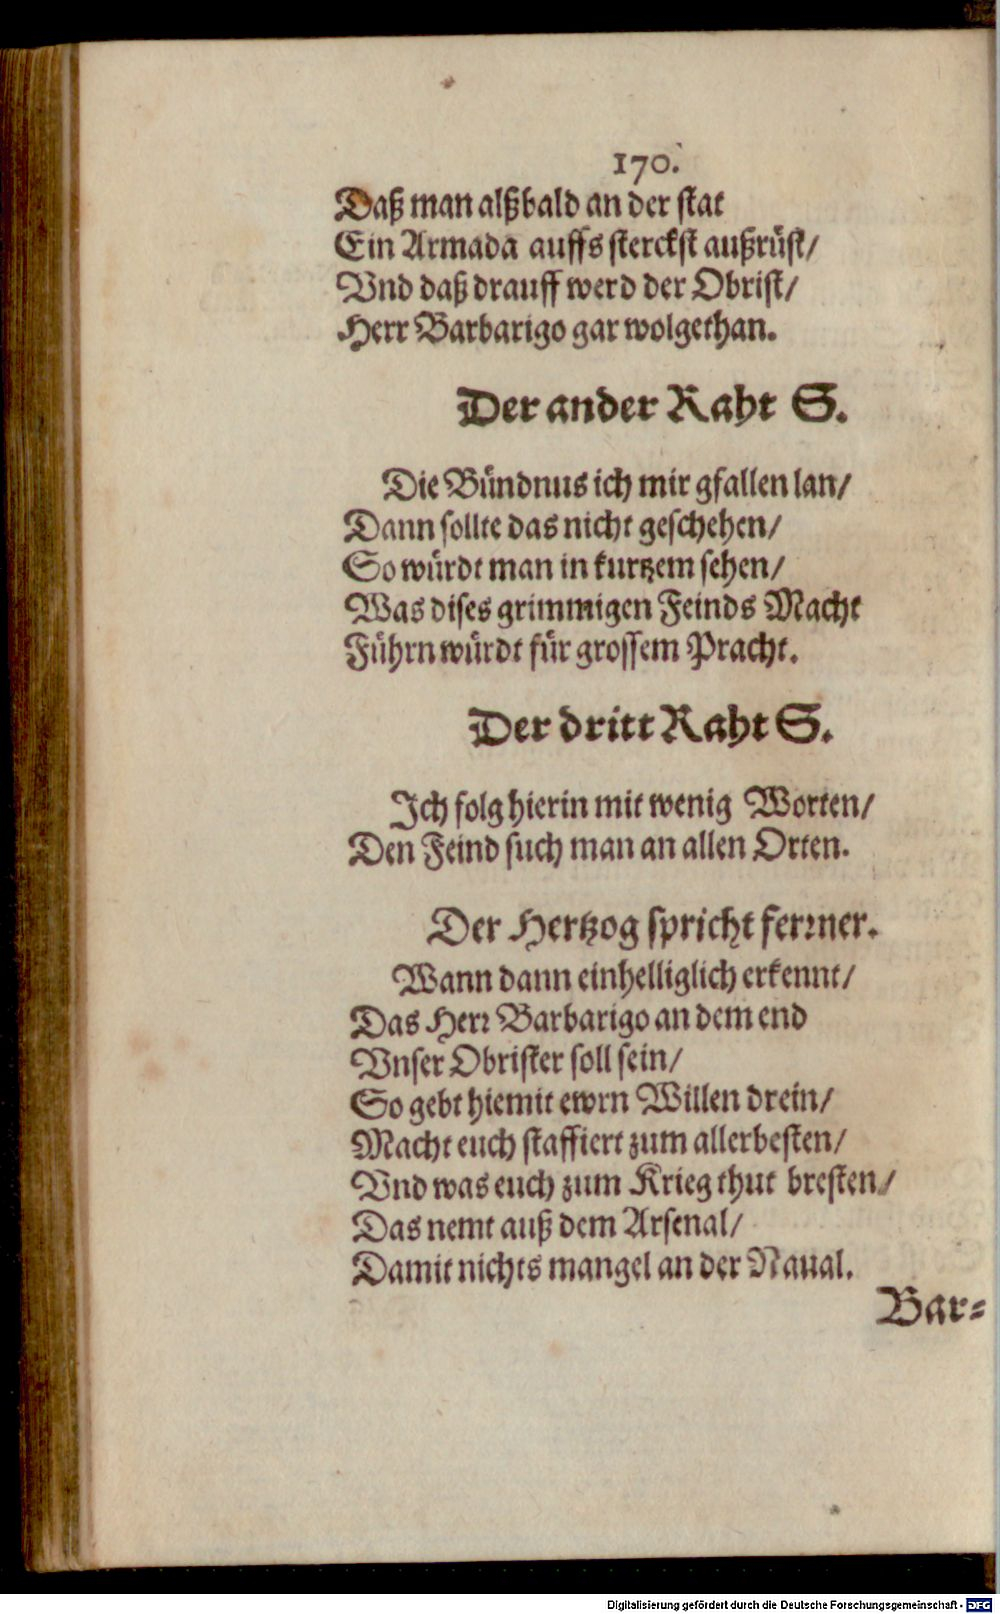 170.
Daß man alßbald an der stat
Ein Armada auffs sterckst außrüst/
Vnd daß drauff werd der Obrist/
Herr Barbarigo gar wolgethan.
Der ander Raht S.
Die Bündnus ich mir gfallen lan/
Dann sollte das nicht geschehen/
So würdt man in kurtzem sehen/
Was dises grimmigen Feinds Macht
Führn würdt für grossem Pracht.
Der dritt Raht S.
Ich folg hierin mit wenig Worten/
Den Feind such man an allen Orten.
Der Hertzog spricht ferꝛner.
Wann dann einhelliglich erkennt/
Das Herꝛ Barbarigo an dem end
Vnser Obrister soll sein/
So gebt hiemit ewrn Willen drein/
Macht euch staffiert zum allerbesten/
Vnd was euch zum Krieg thut bresten/
Das nemt auß dem Arsenal/
Damit nichts mangel an der Naual.
Bar-
Digitalisierung gefördert durch die Deutsche Forschungsgemeinschaft - DFG